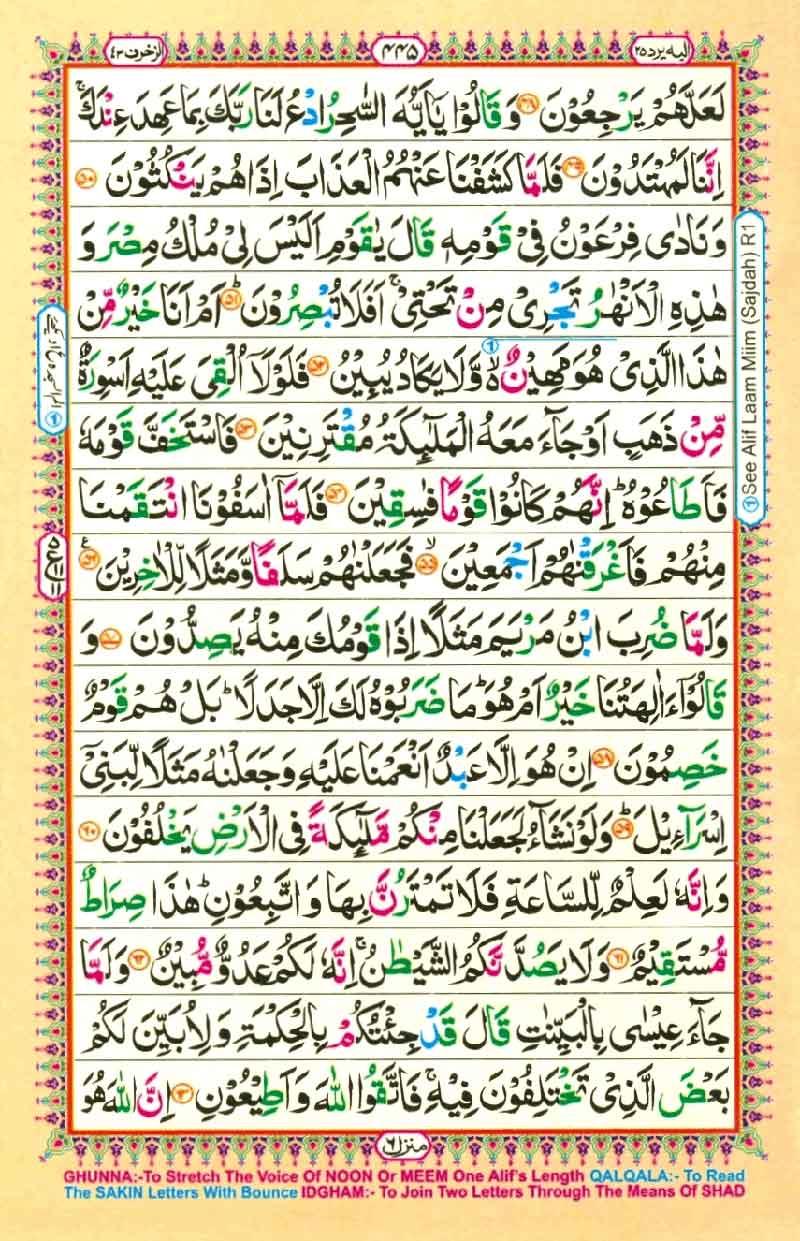 اليه يرد ٢٥
٤٤٥
الزخرف ٤٣
لَعَلَّهُمْ يَرْجِعُوْنَ ﴿۴۸﴾ وَقَالُوْا يٰۤاَيُّهَ السّٰحِرُ ادْعُ لَنَا رَبَّكَ بِمَا عَهِدَ عِنْدَكَ ۚ
اِنَّنَا لَمُهْتَدُوْنَ ﴿۴۹﴾ فَلَمَّا كَشَفْنَا عَنْهُمُ الْعَذَابَ اِذَا هُمْ يَنْكُثُوْنَ ﴿۵۰﴾
وَنَادٰى فِرْعَوْنُ فِىْ قَوْمِهٖ قَالَ يٰقَوْمِ اَلَيْسَ لِىْ مُلْكُ مِصْرَ وَ
هٰذِهِ الْاَنْهٰرُ تَجْرِىْ مِنْ تَحْتِىْ ۚ اَفَلَا تُبْصِرُوْنَ ؕ﴿۵۱﴾ اَمْ اَنَا خَيْرٌ مِّنْ
هٰذَا الَّذِىْ هُوَ مَهِيْنٌ ۙ۬ وَّلَا يَكَادُ يُبِيْنُ ﴿۵۲﴾ فَلَوْلَاۤ اُلْقِىَ عَلَيْهِ اَسْوِرَةٌ
مِّنْ ذَهَبٍ اَوْ جَآءَ مَعَهُ الْمَلٰٓئِكَةُ مُقْتَرِنِيْنَ ﴿۵۳﴾ فَاسْتَخَفَّ قَوْمَهٗ
فَاَطَاعُوْهُ ؕ اِنَّهُمْ كَانُوْا قَوْمًا فٰسِقِيْنَ ﴿۵۴﴾ فَلَمَّاۤ اٰسَفُوْنَا انْتَقَمْنَا
مِنْهُمْ فَاَغْرَقْنٰهُمْ اَجْمَعِيْنَ ﴿۵۵﴾ فَجَعَلْنٰهُمْ سَلَفًا وَّمَثَلًا لِّلْاٰخِرِيْنَ ﴿۵۶﴾
وَلَمَّا ضُرِبَ ابْنُ مَرْيَمَ مَثَلًا اِذَا قَوْمُكَ مِنْهُ يَصِدُّوْنَ ﴿۵۷﴾ وَ
قَالُوْۤا ءَاٰلِهَتُنَا خَيْرٌ اَمْ هُوَ ؕ مَا ضَرَبُوْهُ لَكَ اِلَّا جَدَلًا ؕ بَلْ هُمْ قَوْمٌ
خَصِمُوْنَ ﴿۵۸﴾ اِنْ هُوَ اِلَّا عَبْدٌ اَنْعَمْنَا عَلَيْهِ وَجَعَلْنٰهُ مَثَلًا لِّبَنِىْۤ
اِسْرَآءِيْلَ ؕ﴿۵۹﴾ وَلَوْ نَشَآءُ لَجَعَلْنَا مِنْكُمْ مَّلٰٓئِكَةً فِى الْاَرْضِ يَخْلُفُوْنَ ﴿۶۰﴾
وَاِنَّهٗ لَعِلْمٌ لِّلسَّاعَةِ فَلَا تَمْتَرُنَّ بِهَا وَاتَّبِعُوْنِ ؕ هٰذَا صِرَاطٌ
مُّسْتَقِيْمٌ ﴿۶۱﴾ وَلَا يَصُدَّنَّكُمُ الشَّيْطٰنُ ۚ اِنَّهٗ لَكُمْ عَدُوٌّ مُّبِيْنٌ ﴿۶۲﴾ وَلَمَّا
جَآءَ عِيْسٰى بِالْبَيِّنٰتِ قَالَ قَدْ جِئْتُكُمْ بِالْحِكْمَةِ وَلِاُبَيِّنَ لَكُمْ
بَعْضَ الَّذِىْ تَخْتَلِفُوْنَ فِيْهِ ۚ فَاتَّقُوا اللّٰهَ وَاَطِيْعُوْنِ ﴿۶۳﴾ اِنَّ اللّٰهَ هُوَ
① See Alif Laam Miim (Sajdah) R1
منزل ٦
GHUNNA:-To Stretch The Voice Of NOON Or MEEM One Alif's Length QALQALA:- To Read
The SAKIN Letters With Bounce IDGHAM:- To Join Two Letters Through The Means Of SHAD